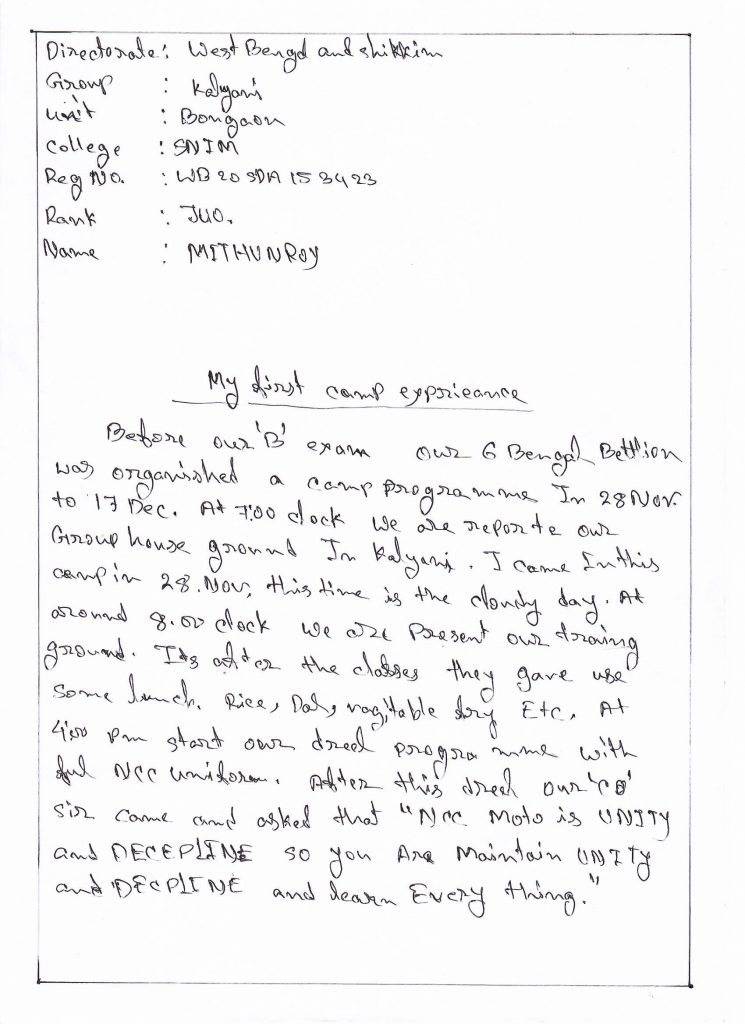 Directorate: West Bengal and shikkim
Group : Kalyani
Unit : Bongaon
College : SNIM
Reg No. : WB 20 SDA 153423
Rank : JUO.
Name : MITHUN ROY
My first camp exprieance
Before our 'B' exam our 6 Bengal Bettlion
was organished a camp programme In 28 Nov.
to 17 Dec. At 7:00 clock we are reporte our
Group house ground In Kalyani. I came In this
camp in 28. Nov, this time is the cloudy day. At
around 8.00 clock we are Present our traing
ground. Its after the classes they gave use
some lunch. Rice, Dal, vagitable dry Etc. At
4:00 Pm start our dreel programme with
ful NCC uniform. After this dreel our 'CO'
sir came and asked that "Ncc Moto is UNITY
and DECEPLINE so you Are Maintain UNITY
and DECPLINE and learn Every thing."